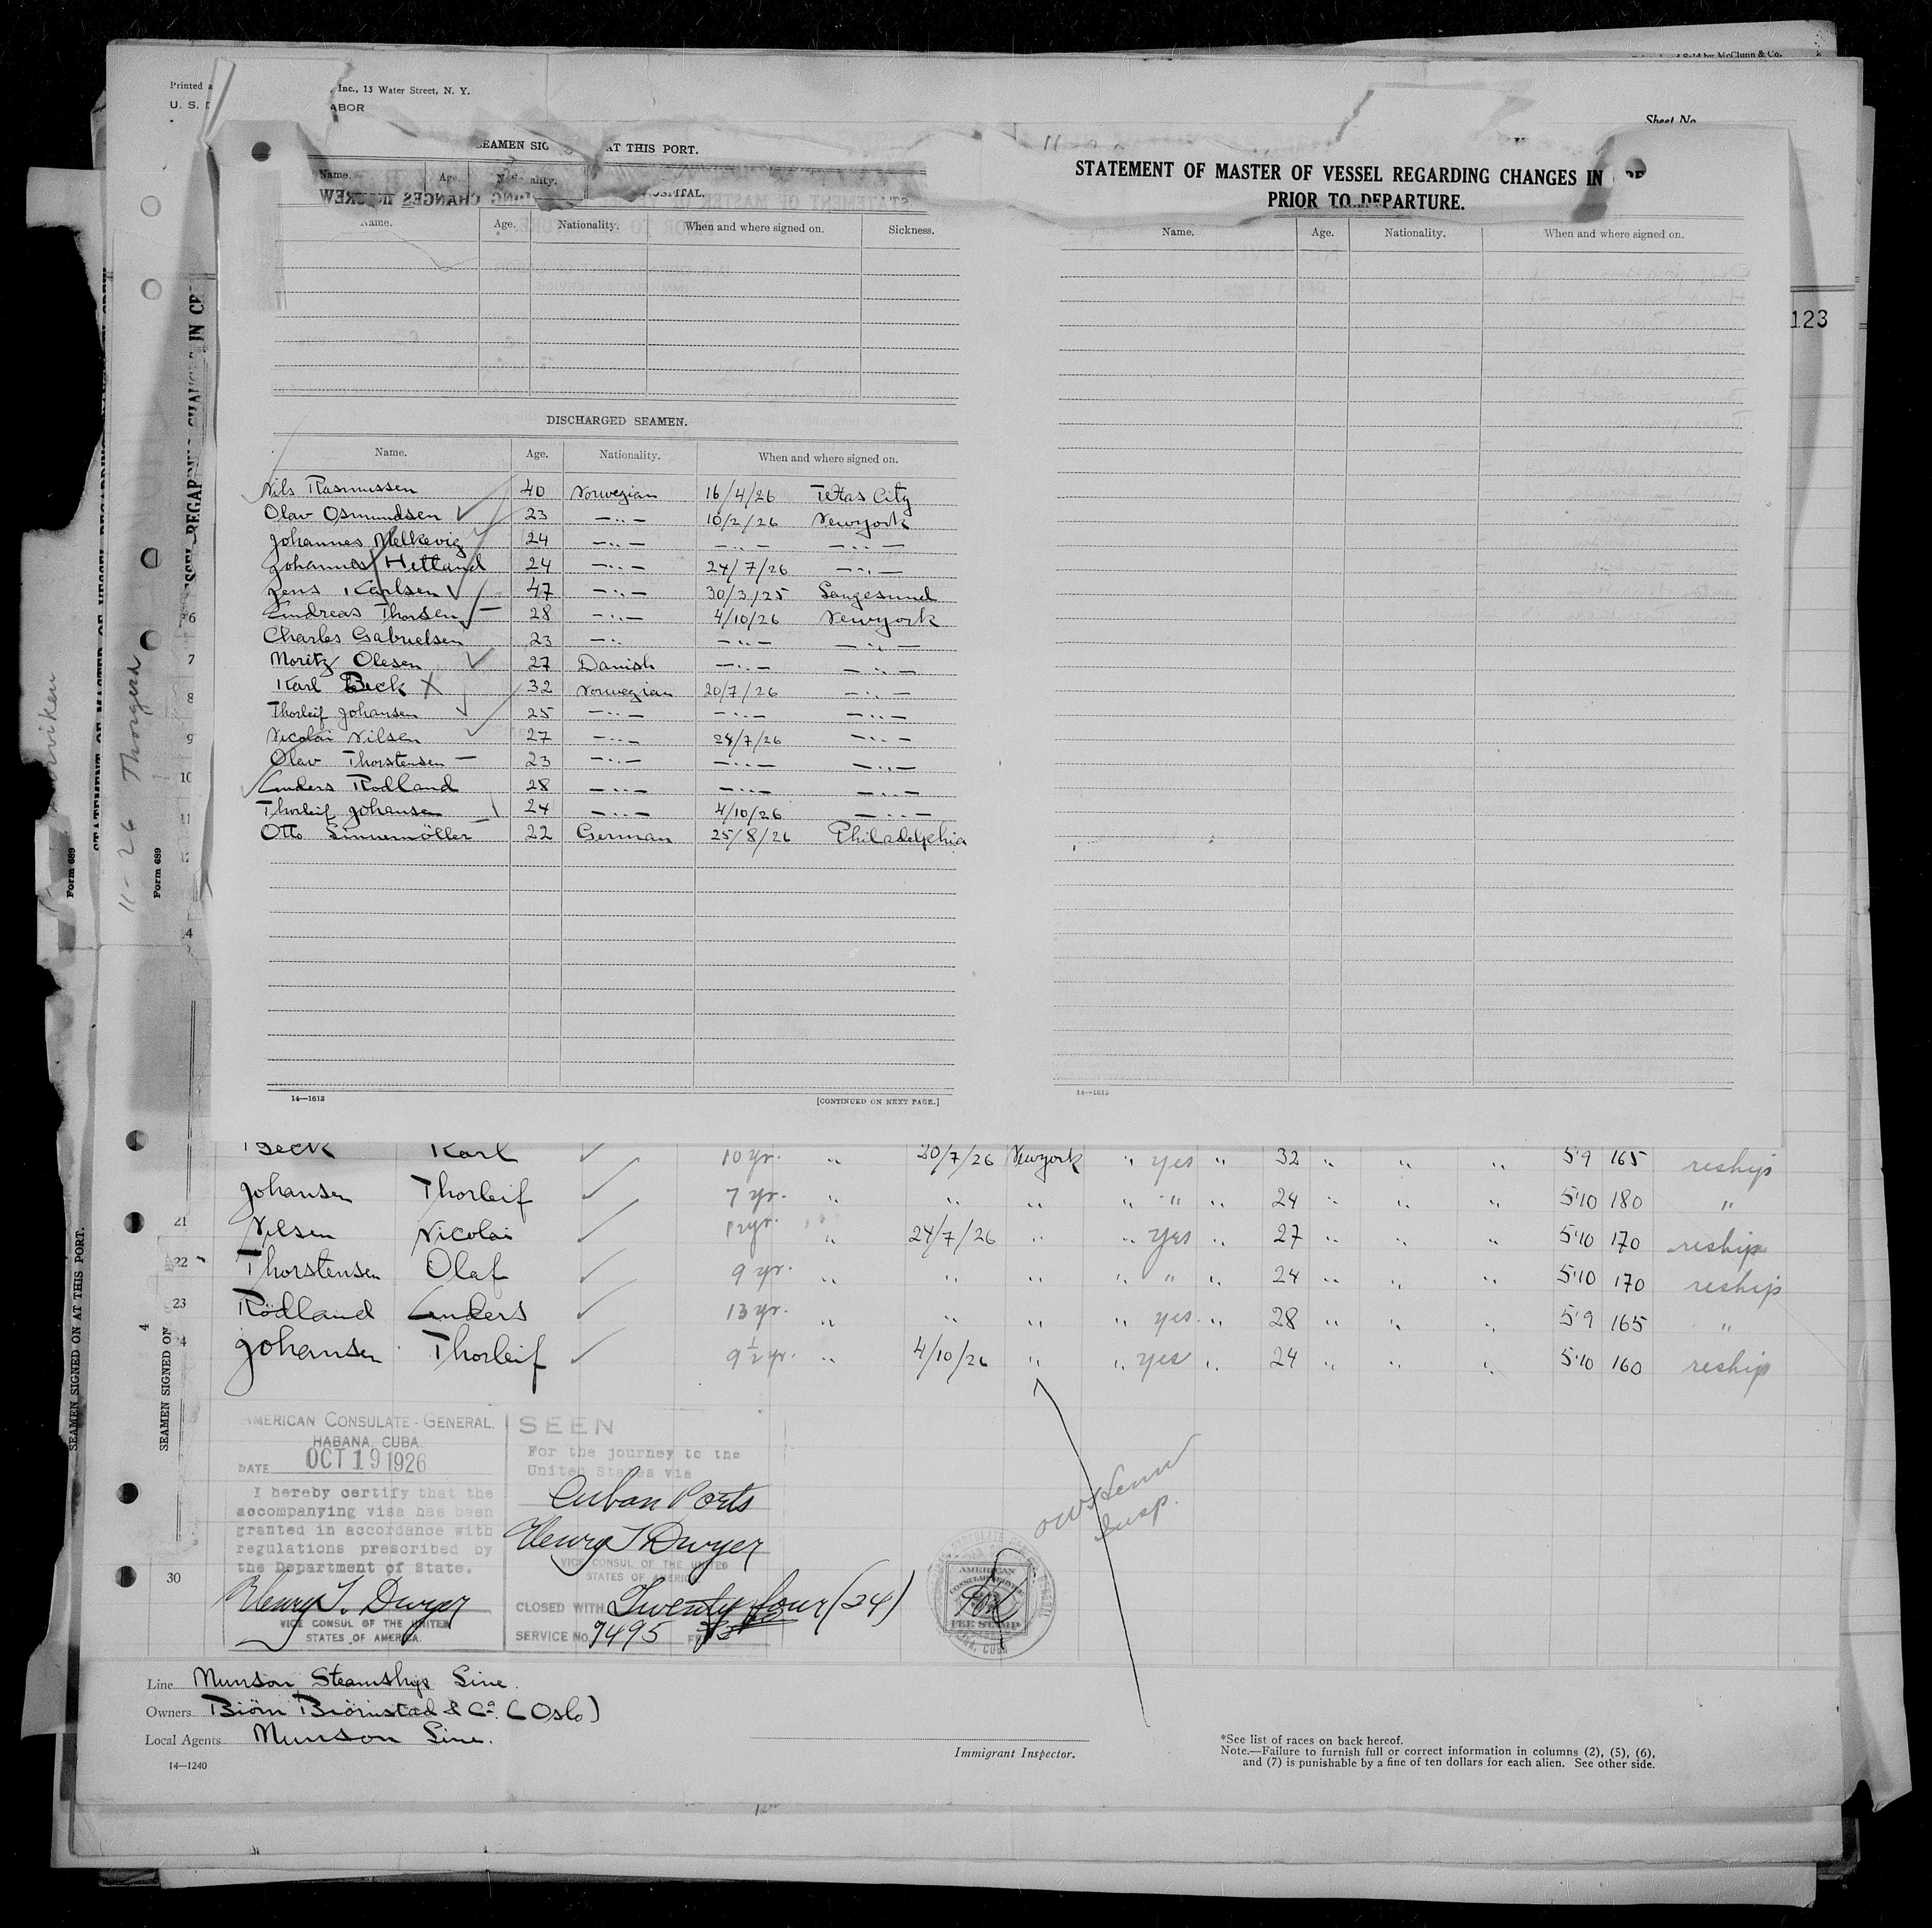 Inc., 13 Water Street, N. Y.
U. S.
Sheet No
SEAMEN SIG AT THIS PORT.
Name. Age.
Name. Age. Nationality. When and where signed on. Sickness.
DISCHARGED SEAMEN.
Name. Age. Nationality. When and where signed on.
Nils Rasmussen 40 Norwegian 16/4/26 Texas City
Olav Osmundsen 23 —..— 10/2/26 Newyork
Johannes Melkevig 24 —..— —..— —..—
Johannes Hetland 24 —..— 24/7/26 —..—
Jens Karlsen 47 —..— 30/3/25 Langesund
Andreas Thorsen 28 —..— 4/10/26 Newyork
Charles Gabrielsen 23 —.. —..— —..—
Moritz Olesen 27 Danish —..— —..—
Karl Beck 32 Norwegian 20/7/26 —..—
Thorleif Johansen 25 —..— —..— —..—
Nicolai Nilsen 27 —..— 24/7/26 —..—
Olav Thorstensen 23 —..— —..— —..—
Anders Rodland 28 —..— —..— —..—
Thorleif Johansen 24 —..— 4/10/26 —..—
Otto 22 German 25/8/26 Philadelphia
14—1613 [CONTINUED ON NEXT PAGE.]
STATEMENT OF MASTER OF VESSEL REGARDING CHANGES IN
PRIOR TO DEPARTURE.
Name. Age. Nationality. When and where signed on.
14—1613
123
11-26 Thorgerd
Form 689
Form 689
SEAMEN SIGNED ON AT THIS PORT.
SEAMEN SIGNED ON
Beck Karl 10 yr. " 20/7/26 Newyork " yes " 32 " " " 5'9 165 reship
Johansen Thorleif 7 yr. " " " " " " 24 " " " 5'10 180 "
21 Nilsen Nicolai 12 yr. " 24/7/26 " " yes " 27 " " " 5'10 170 reship
22 Thorstensen Olaf 9 yr. " " " " " " 24 " " " 5'10 170 reship
23 Rödland Anders 13 yr. " " " " yes " 28 " " " 5'9 165 "
24 Johansen Thorleif 9½ yr. " 4/10/26 " " yes " 24 " " " 5'10 160 reship
AMERICAN CONSULATE-GENERAL,
HABANA, CUBA.
DATE OCT 19 1926
I hereby certify that the
accompanying visa has been
granted in accordance with
regulations prescribed by
the Department of State.
Henry T. Dwyer
VICE CONSUL OF THE UNITED
STATES OF AMERICA.
SEEN
For the journey to the
United States via
Cuban Ports
Henry T Dwyer
VICE CONSUL OF THE UNITED
STATES OF AMERICA
CLOSED WITH Twenty four (24)
SERVICE No. 7495
AMERICAN
FEE STAMP
Insp.
30
Line Munson Steamship Line.
Owners Biörn Biörnstad & Co. (Oslo)
Local Agents Munson Line.
14—1240
Immigrant Inspector.
*See list of races on back hereof.
Note.—Failure to furnish full or correct information in columns (2), (5), (6),
and (7) is punishable by a fine of ten dollars for each alien. See other side.